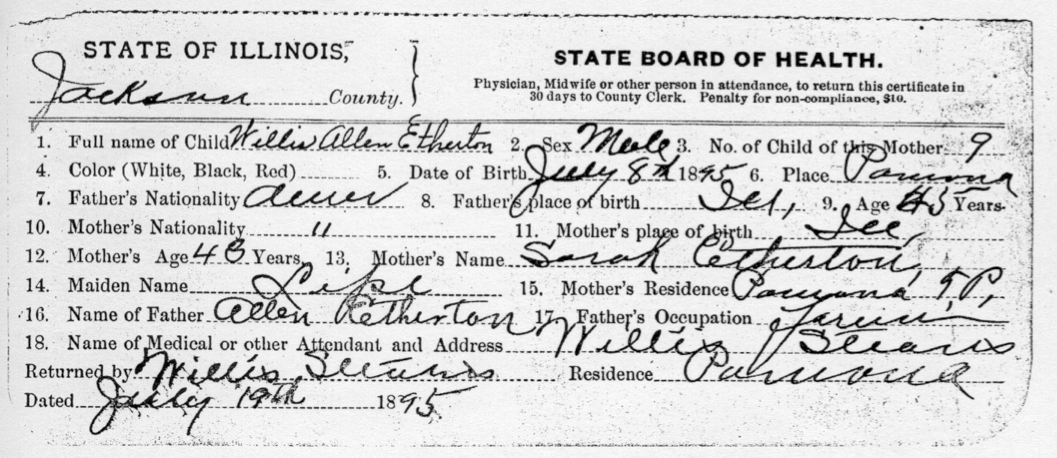 STATE OF ILLINOIS,
Jackson County.
STATE BOARD OF HEALTH.
Physician, Midwife or other person in attendance, to return this certificate in
30 days to County Clerk. Penalty for non-compliance, $10.
1. Full name of Child Willis Allen Etherton 2. Sex Male 3. No. of Child of this Mother 9
4. Color (White, Black, Red) 5. Date of Birth July 8th 1895 6. Place Pomona
7. Father's Nationality Amer 8. Father's place of birth Ill, 9. Age 45 Years.
10. Mother's Nationality " 11. Mother's place of birth Ill,
12. Mother's Age 43 Years, 13. Mother's Name Sarah Etherton,
14. Maiden Name Lipe 15. Mother's Residence Pomona T.P.
16. Name of Father Allen Etherton 17. Father's Occupation
18. Name of Medical or other Attendant and Address Willis Stearns
Returned by Willis Stearns Residence Pomona
Dated July 19th 1895